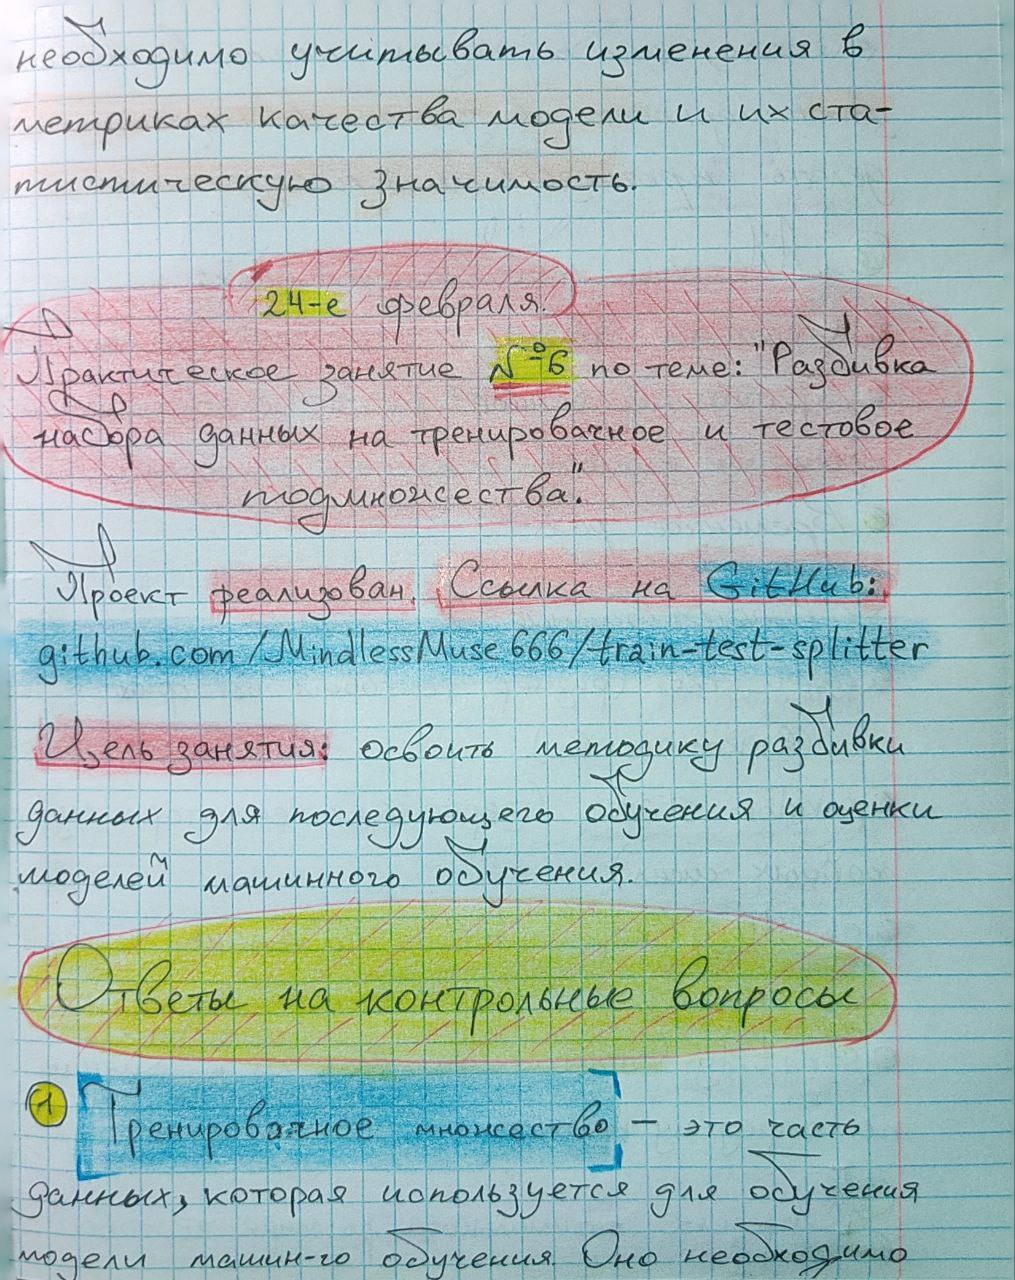 необходимо учитывать изменения в
метриках качества модели и их ста-
тистическую значимость.
24-е февраля.
Практическое занятие №6 по теме: "Разбивка
набора данных на тренировочное и тестовое
подмножества".
Проект реализован. Ссылка на GitHub:
github.com/MindlessMuse666/train-test-splitter
Цель занятия: освоить методику разбивки
данных для последующего обучения и оценки
моделей машинного обучения.
Ответы на контрольные вопросы
1 Тренировочное множество — это часть
данных, которая используется для обучения
модели машин-го обучения. Оно необходимо